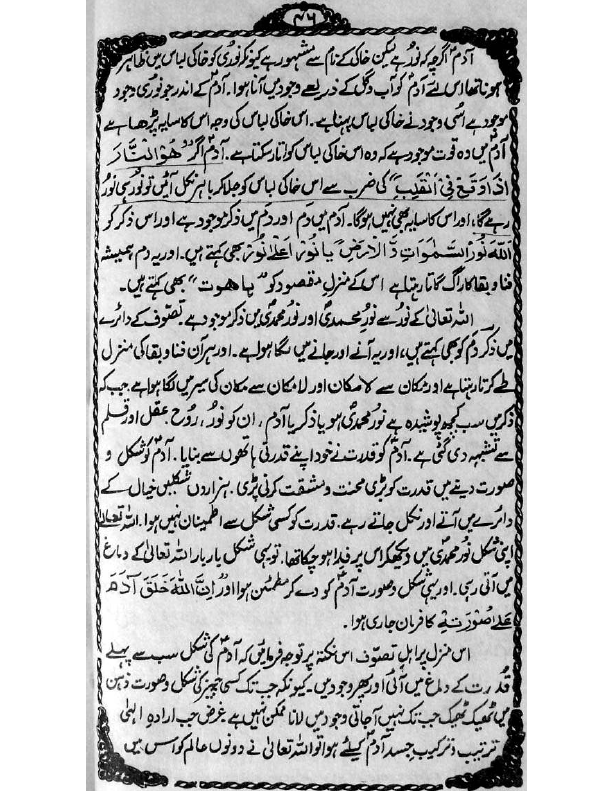 ۴۶
آدمؑ اگرچہ کہ نور ہے لیکن خاکی کے نام سے مشہور ہے کیونکہ نوری کو خاکی لباس میں ظاہر
ہونا تھا اس لئے آدمؑ کو آب و گل کے ذریعے وجود میں آنا ہوا۔ آدمؑ کے اندر جو نوری وجود
موجود ہے اُسی وجود نے خاکی لباس پہنا ہے۔ اس خاکی لباس کی وجہ اس کا سایہ پڑھا ہے
آدمؑ میں وہ قوت موجود ہے کہ وہ اس خاکی لباس کو اُتار سکتا ہے۔ آدمؑ اگر "ھُوَ النَّار
اِذَا وَقَعَ فِی الْقَلْبِ" کی ضرب سے اس خاکی لباس کو جلا کر باہر نکل آئیں تو نور ہی نور
رہے گا، اور اس کا سایہ بھی نہیں ہوگا۔ آدم میں دم اور دم میں ذکر موجود ہے اور اس ذکر کو
اَللّٰهُ نُوْرُ السَّمٰوَاتِ وَالْاَرْضِ یا نُوْرٌ اَعْلٰی نُوْر بھی کہتے ہیں۔ اور یہ دم ہمیشہ
فنا و بقا کا راگ گاتا رہتا ہے اس کے منزلِ مقصود کو "یاھوت" بھی کہتے ہیں۔
اللہ تعالیٰ کے نور سے نورِ محمدیؐ اور نورِ محمدیؐ میں ذکر موجود ہے۔ تصوّف کے دائرے
میں ذکر دم کو بھی کہتے ہیں، اور یہ آنے اور جانے میں لگا ہوا ہے۔ اور ہر آن فنا و بقا کی منزل
طے کرتا رہتا ہے اور مکان سے لامکان اور لامکان سے مکان کی سیر میں لگا ہوا ہے۔ جب کہ
ذکر میں سب کچھ پوشیدہ ہے نورِ محمدیؐ ہو یا ذکر یا آدم، ان کو نور، روح، عقل اور قلم
سے تشبیہہ دی گئی ہے۔ آدمؑ کو قدرت نے خود اپنے قدرتی ہاتھوں سے بنایا۔ آدمؑ کو شکل و
صورت دینے میں قدرت کو بڑی محنت و مشقت کرنی پڑی۔ ہزاروں شکلیں خیال کے
دائرے میں آتے اور نکل جاتے رہے۔ قدرت کو کسی شکل سے اطمینان نہیں ہوا۔ اللہ تعالیٰ
اپنی شکل نورِ محمدیؐ میں دیکھ کر اس پر فدا ہو چکا تھا۔ تو یہی شکل بار بار اللہ تعالیٰ کے دماغ
میں آتی رہی۔ اور یہی شکل و صورت آدمؑ کو دے کر مطمئن ہوا اور اِنَّ اللّٰهَ خَلَقَ آدَمَ
عَلٰی صُوْرَتِهٖ کا فرمان جاری ہوا۔
اس منزل پر اہلِ تصوّف اس نکتہ پر توجہ فرمائیں کہ آدمؑ کی شکل سب سے پہلے
قدرت کے دماغ میں آئی اور پھر وجود میں۔ کیونکہ جب تک کسی چیز کی شکل و صورت ذہن
میں ٹھیک ٹھیک جب تک نہیں آجاتی وجود میں لانا ممکن نہیں ہے غرض جب ارادہ الٰہی
ترتیب و ترکیب جسد آدمؑ کیلئے ہوا تو اللہ تعالیٰ نے دونوں عالم کو اس میں